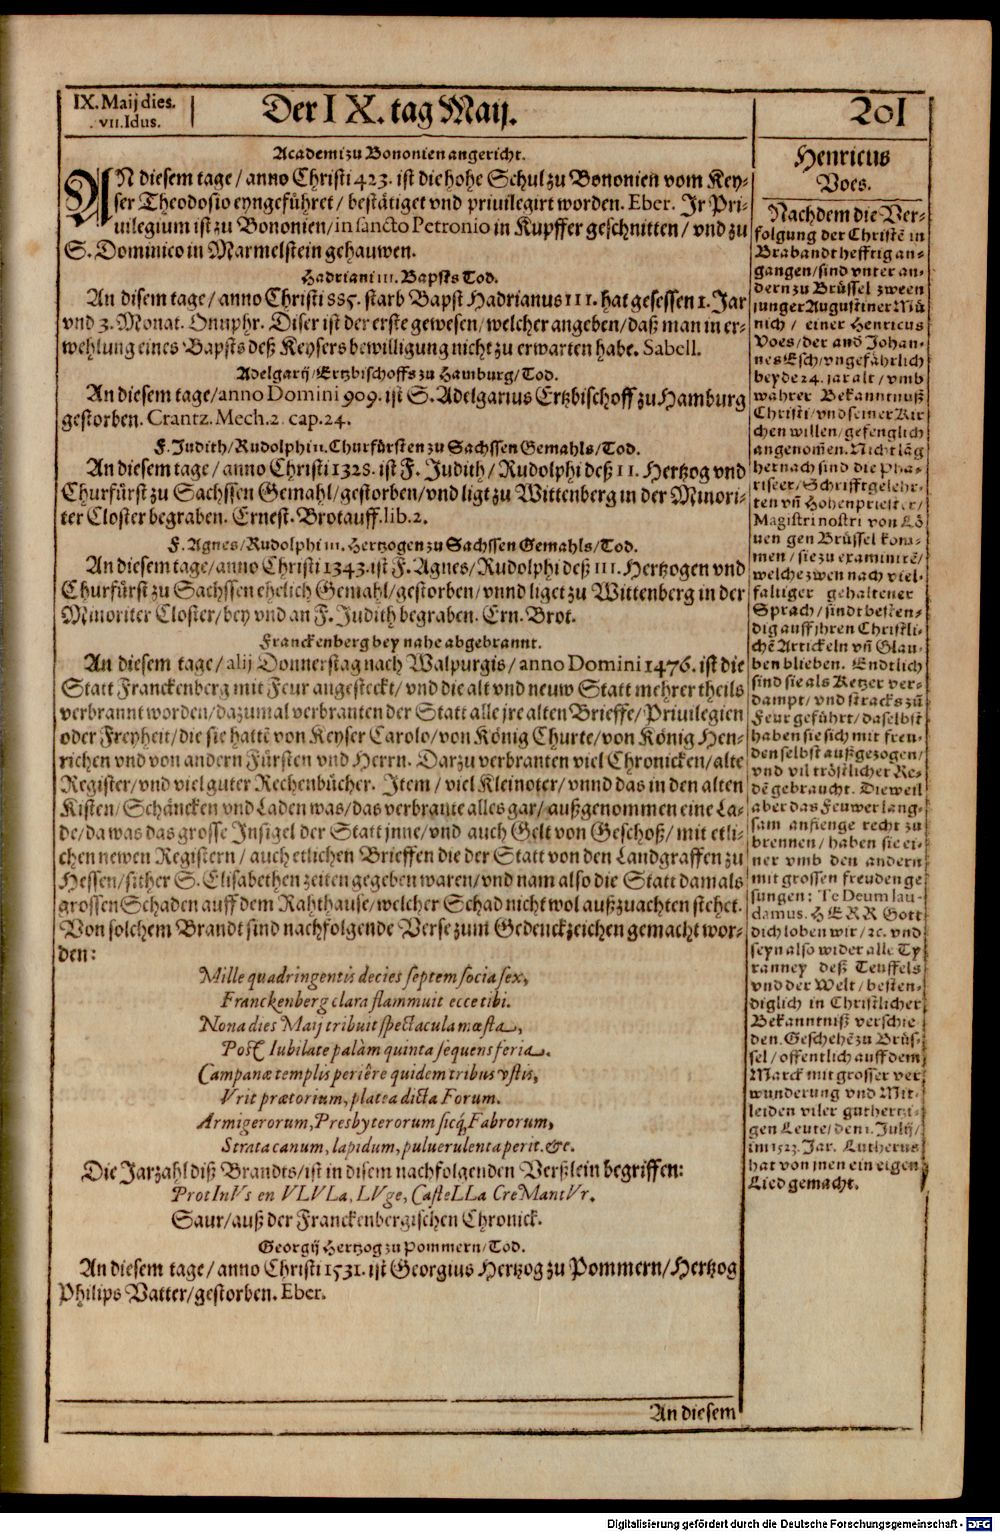 IX. Maij dies.
. VII. Idus.
Der IX. tag Maij.
201
Academi zu Bononien angericht.
AN diesem tage / anno Christi 423. ist die hohe Schul zu Bononien vom Key-
ser Theodosio eyngeführet / bestätiget vnd priuilegirt worden. Eber. Jr Pri-
uilegium ist zu Bononien / in sancto Petronio in Kupffer geschnitten / vnd zu
S. Dominico in Marmelstein gehauwen.
Hadriani III. Bapsts Tod.
An disem tage / anno Christi 885. starb Bapst Hadrianus III. hat gesessen 1. Jar
vnd 3. Monat. Onuphr. Diser ist der erste gewesen / welcher angeben / daß man in er-
wehlung eines Bapsts deß Keysers bewilligung nicht zu erwarten habe. Sabell.
Adelgarij / Ertzbischoffs zu Hamburg / Tod.
An diesem tage / anno Domini 909. ist S. Adelgarius Ertzbischoff zu Hamburg
gestorben. Crantz. Mech. 2. cap. 24.
F. Judith / Rudolphi II. Churfürsten zu Sachssen Gemahls / Tod.
An diesem tage / anno Christi 1328. ist F. Judith / Rudolphi deß II. Hertzog vnd
Churfürst zu Sachssen Gemahl / gestorben / vnd ligt zu Wittenberg in der Minori-
ter Closter begraben. Ernest. Brotauff. lib. 2.
F. Agnes / Rudolphi III. Hertzogen zu Sachssen Gemahls / Tod.
An diesem tage / anno Christi 1343. ist F. Agnes / Rudolphi deß III. Hertzogen vnd
Churfürst zu Sachssen ehelich Gemahl / gestorben / vnnd liget zu Wittenberg in der
Minoriter Closter / bey vnd an F. Judith begraben. Ern. Brot.
Franckenberg bey nahe abgebrannt.
An diesem tage / alij Donnerstag nach Walpurgis / anno Domini 1476. ist die
Statt Franckenberg mit Feur angesteckt / vnd die alt vnd neuw Statt mehrer theils
verbrannt worden / dazumal verbranten der Statt alle jre alten Brieffe / Priuilegien
oder Freyheit / die sie hattē von Keyser Carolo / von König Churte / von König Hen-
richen vnd von andern Fürsten vnd Herrn. Darzu verbranten viel Chronicken / alte
Register / vnd viel guter Rechenbücher. Item / viel Kleinoter / vnnd das in den alten
Kisten / Schäncken vnd Laden was / das verbrante alles gar / außgenommen eine La-
de / da was das grosse Insigel der Statt jnne / vnd auch Gelt von Geschoß / mit etli-
chen newen Registern / auch etlichen Brieffen die der Statt von den Landgraffen zu
Hessen / sither S. Elisabethen zeiten gegeben waren / vnd nam also die Statt damals
grossen Schaden auff dem Rahthause / welcher Schad nicht wol außzuachten stehet.
Von solchem Brandt sind nachfolgende Verse zum Gedenckzeichen gemacht wor-
den:
Mille quadringentis decies septem socia sex,
Franckenberg clara flammuit ecce tibi.
Nona dies Maij tribuit spectacula mœsta,
Post Iubilate palàm quinta sequens feria.
Campanæ templis periêre quidem tribus vstis,
Vrit prætorium, platea dicta Forum.
Armigerorum, Presbyterorum sicq́, Fabrorum,
Strata canum, lapidum, puluerulenta perit. &c.
Die Jarzahl diß Brandts / ist in disem nachfolgenden Verßlein begriffen:
ProtInVs en VLVLa, LVge, CasteLLa CreMantVr.
Saur / auß der Franckenbergischen Chronick.
Georgij Hertzog zu Pommern / Tod.
An diesem tage / anno Christi 1531. ist Georgius Hertzog zu Pommern / Hertzog
Philips Vatter / gestorben. Eber.
An diesem
Henricus
Voes.
Nachdem die Ver-
folgung der Christē in
Brabandt hefftig an-
gangen / sind vnter an-
dern zu Brüssel zween
junger Augustiner Mü
nich / einer Henricus
Voes / der and Johan-
nes Esch / vngefährlich
beyde 24. jar alt / vmb
wahrer Bekanntnuß
Christi / vnd seiner Kir
chen willen / gefenglich
angenom̄en. Nicht läg
hernach sind die Pha-
riseer / Schrifftgelehr-
ten vn̄ Hohenpriester /
Magistri nostri von Lö
uen gen Brüssel kom-
men / sie zu examinirē /
welche zwen nach viel-
faltiger gehaltener
Sprach / sindt besten-
dig auff jhren Christli-
chē Artickeln vn̄ Glau-
ben blieben. Endtlich
sind sie als Ketzer ver-
dampt / vnd stracks zū
Feur geführt / daselbst
haben sie sich mit freu-
den selbst außgezogen /
vnd vil tröstlicher Re-
dē gebraucht. Dieweil
aber das Feuwer lang-
sam anfienge recht zu
brennen / haben sie ei-
ner vmb den andern
mit grossen freuden ge
sungen: Te Deum lau-
damus. HERR Gott
dich loben wir / ꝛc. vnd
seyn also wider alle Ty
ranney deß Teuffels
vnd der Welt / besten-
diglich in Christlicher
Bekanntniß verschie
den. Geschehē zu Brüs-
sel / offentlich auff dem
Marck mit grosser ver
wunderung vnd Mit-
leiden viler guthertzi-
gen Leute / den 1. Julij /
im 1523. Jar. Lutherus
hat von jnen ein eigen
Lied gemacht.
Digitalisierung gefördert durch die Deutsche Forschungsgemeinschaft - DFG